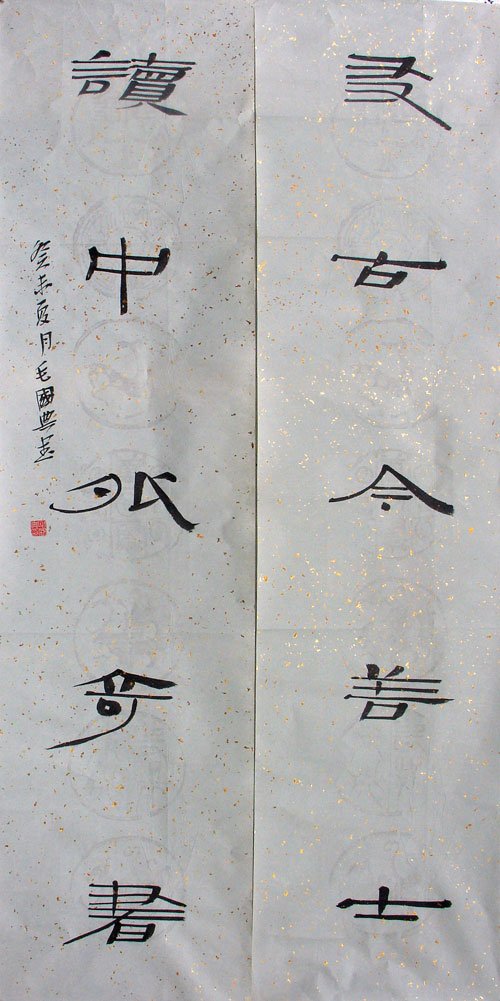 友古今善士
讀中外奇書
癸未夏月毛國典書